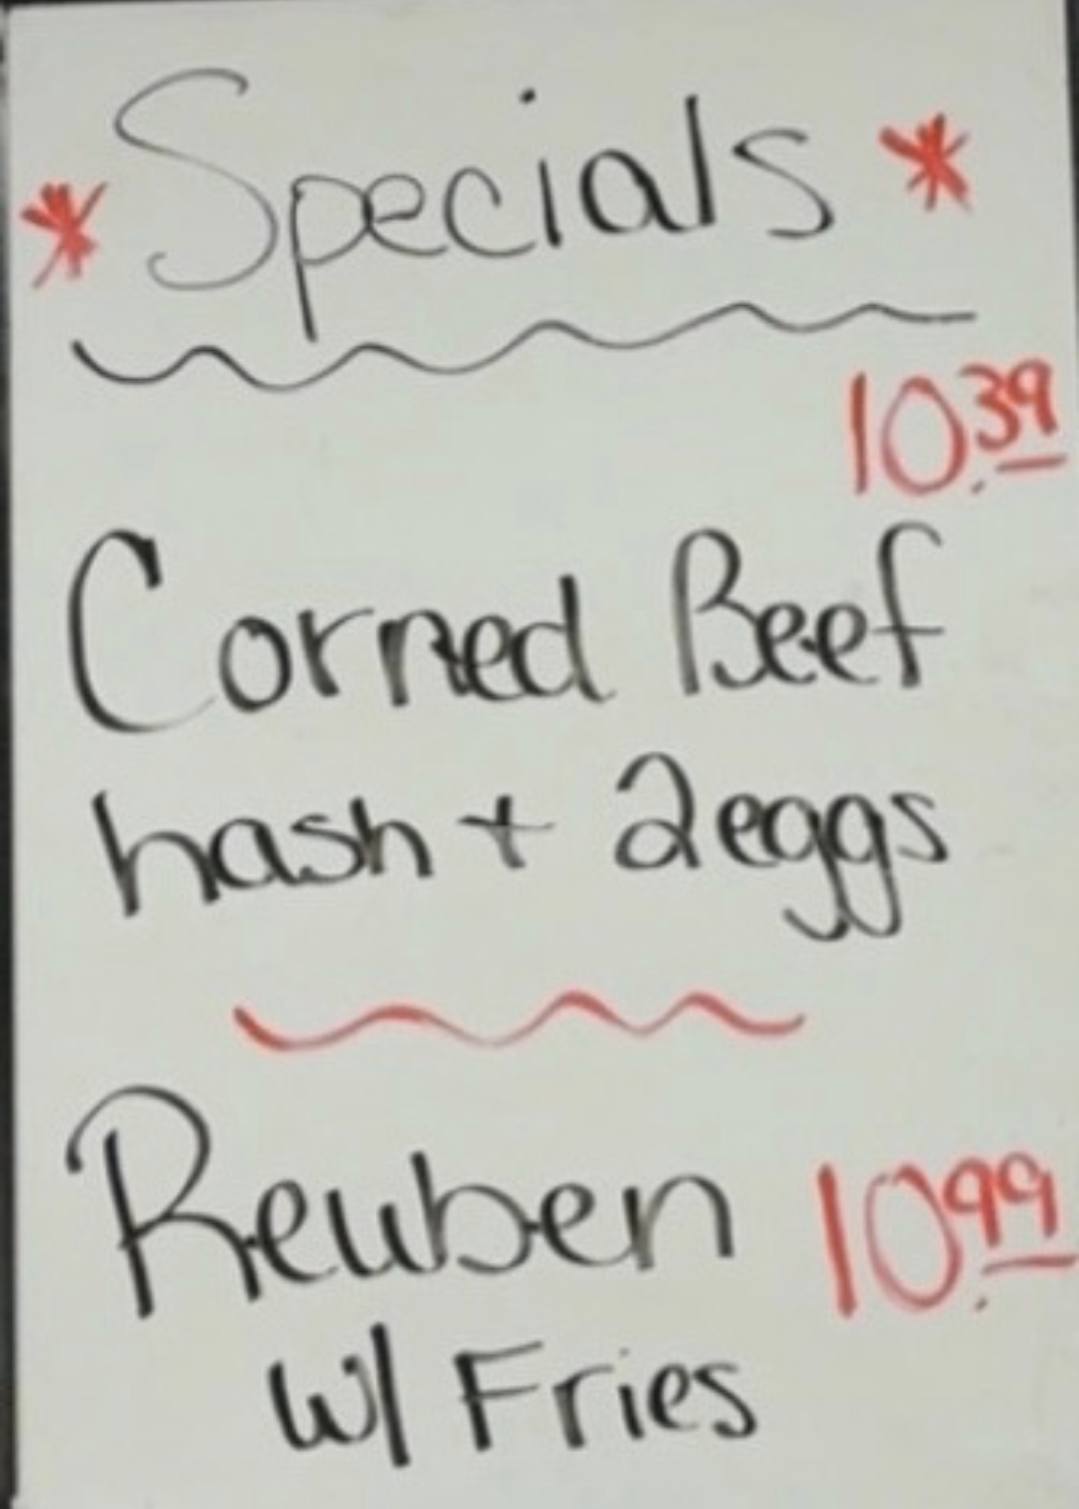 * Specials *
10.39
Corned Beef
hash + 2eggs
Reuben 10.99
w/ Fries